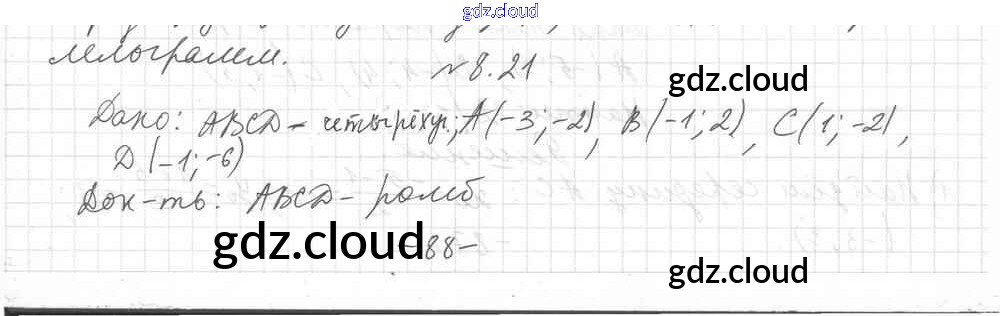 gdz.cloud
лелограмм.
№8.21
gdz.cloud
Дано: ABCD - четырёхуг.; A(-3;-2), B(-1;2), C(1;-2),
D(-1;-6)
Док-ть: ABCD - ромб
gdz.cloud
-88-
gdz.cloud